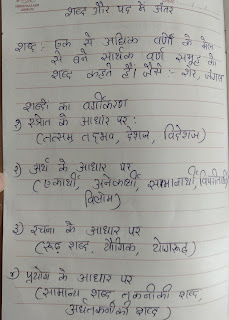 शब्द और पद में अंतर
शब्द : एक से अधिक वर्णों के मेल
से बने सार्थक वर्ण समूह को
शब्द कहते हैं। जैसे :- शेर, जंगल
शब्दों का वर्गीकरण
1) स्त्रोत के आधार पर :
(तत्सम, तद्भव, देशज, विदेशज)
2) अर्थ के आधार पर
(एकार्थी, अनेकार्थी, समानार्थी,
विलोम)
3) रचना के आधार पर
(रूढ़ शब्द, यौगिक, योगरूढ़)
4) प्रयोग के आधार पर
(सामान्य शब्द तकनीकी शब्द,
अर्धतकनीकी शब्द)